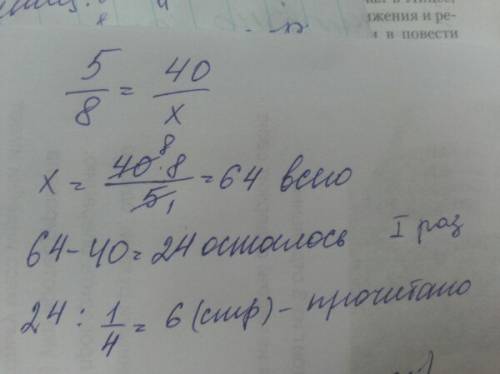 жения и ре-
м в повести
5/8 = 40/x
x = 40·8/5 = 64 всего
64-40=24 осталось I раз
24 : 1/4 = 6 (стр) - прочитано